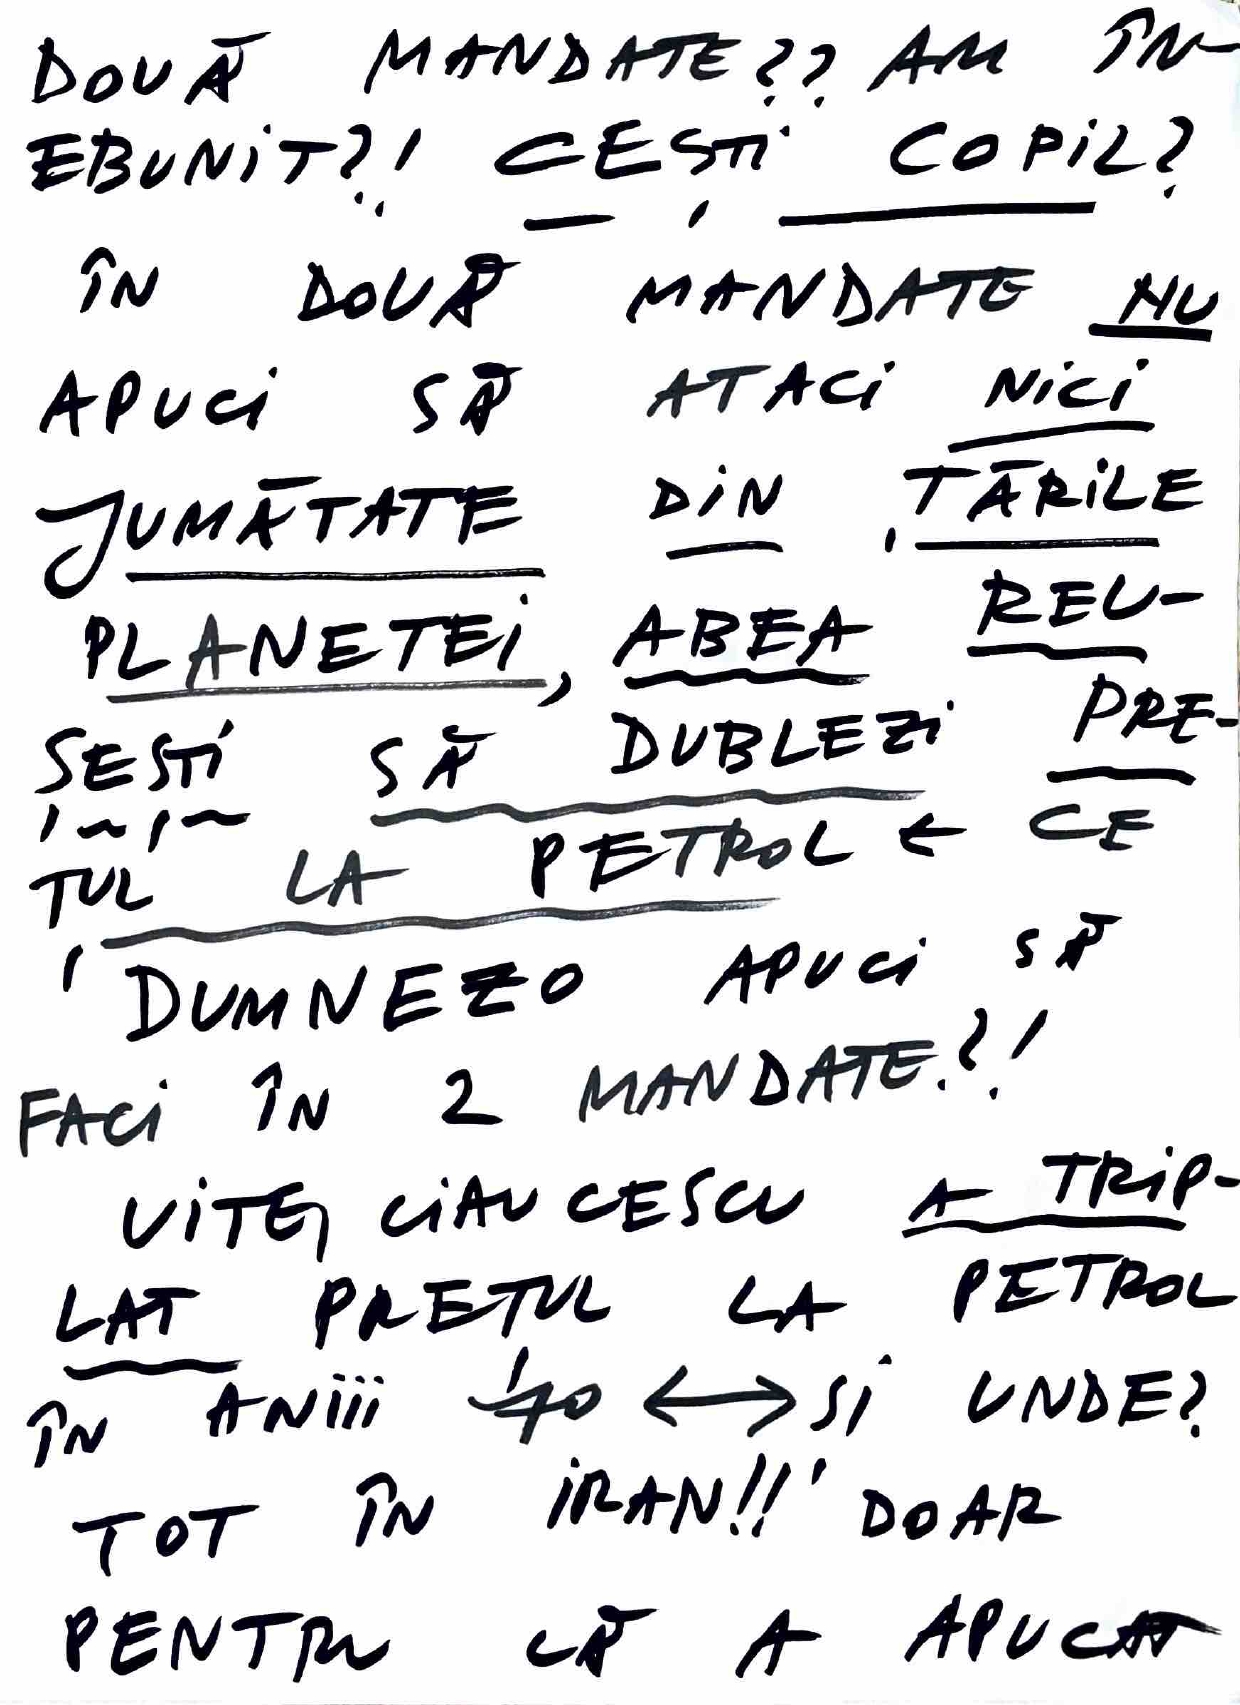 DOUĂ MANDATE?? AM ÎN-
EBUNIT?! CEȘTI COPIL?
ÎN DOUĂ MANDATE NU
APUCI SĂ ATACI NICI
JUMĂTATE DIN ȚĂRILE
PLANETEI, ABEA REU-
ȘEȘTI SĂ DUBLEZI PRE-
ȚUL LA PETROL ← CE
DUMNEZO APUCI SĂ
FACI ÎN 2 MANDATE?!
UITE, CIAUCESCU A TRIP-
LAT PREȚUL LA PETROL
ÎN ANIII '70 ↔ ȘI UNDE?
TOT ÎN IRAN!! DOAR
PENTRU CĂ A APUCAT